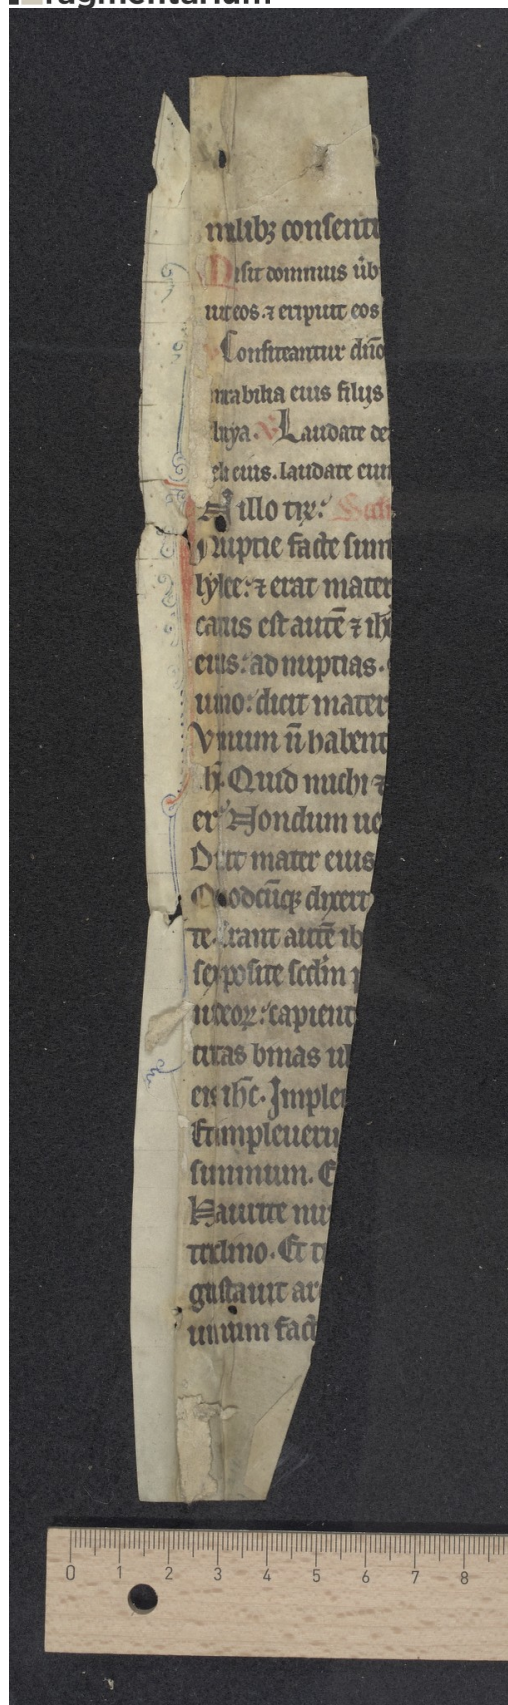 milib; consenti
Misit dominus ūb
uit eos. ⁊ eripuit eos
Confiteantur dn̄o
mirabilia eius filijs
luya. V Laudate de
eli eius. laudate eum
N illo tꝑꝛ: Secūn
Nuptie facte sunt
lylee: ⁊ erat mater
catus est autē ⁊ ih̄
eius: ad nuptias.
uino: dicit mater
Vinum n̄ habent
h̄. Quid michi ⁊
er Nondum ue
Dicit mater eius
Quodcūq; dixerit
te. Erant autē ib
sex posite scdm̄ p
iudeoꝝ: capient
tretas binas ul
eis ih̄c. Implet
Et impleueru
summum. E
Haurite nu
triclino. Et t
gustauit ar
uinum fact
0 1 2 3 4 5 6 7 8